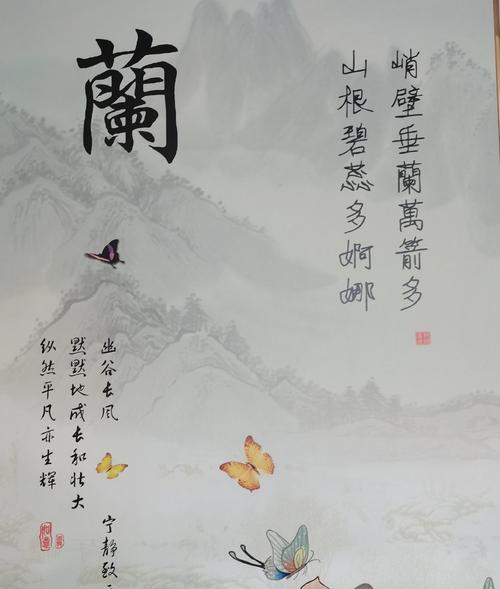 蘭
峭壁垂蘭萬箭多
山根碧蕊多婀娜
幽谷长风
宁静致
默默地成长和壮大
纵然平凡亦生辉